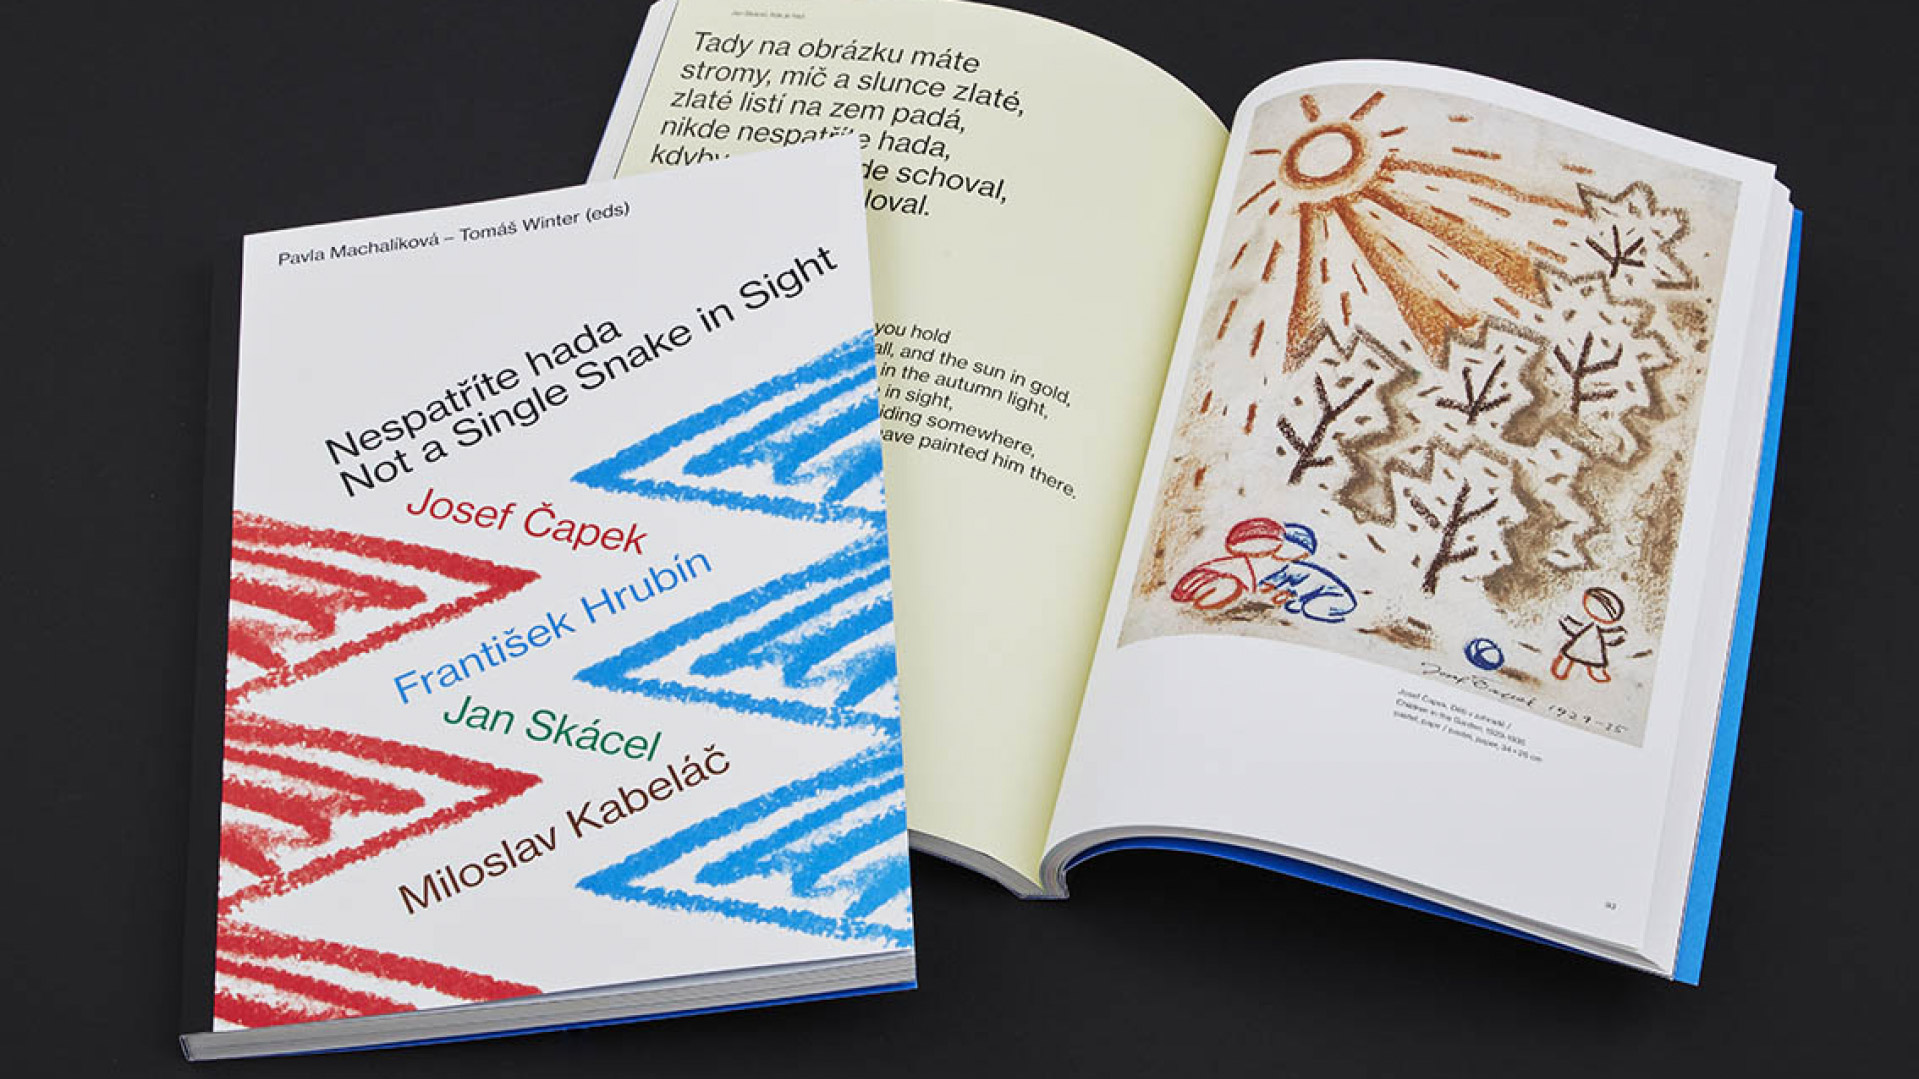 Pavla Machalíková – Tomáš Winter (eds)
Nespatříte hada
Not a Single Snake in Sight
Josef Čapek
František Hrubín
Jan Skácel
Miloslav Kabeláč
Tady na obrázku máte
stromy, míč a slunce zlaté,
zlaté listí na zem padá,
nikde nespatříte hada,
kdyby
schoval,
you hold
and the sun in gold,
in the autumn light,
in sight,
somewhere,
painted him there.
Josef Čapek 1929–35
Josef Čapek, Děti v zahradě /
Children in the Garden, 1929–1935
pastel, papír / pastel, paper, 34 × 26 cm